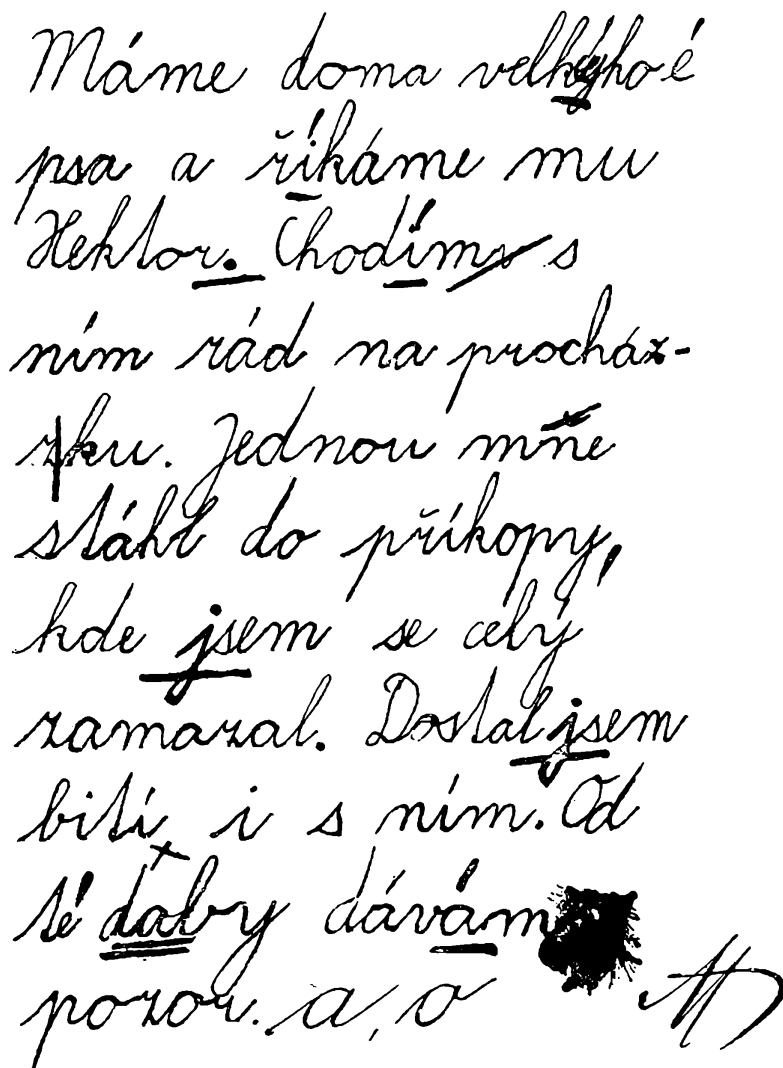 Máme doma velkýho é
psa a říkáme mu
Hektor. Chodím s
ním rád na procház-
zku. Jednou mně
stáhl do příkopy,
kde jsem se celý
zamazal. Dostal jsem
bití i s ním. Od
té daby dávám
pozor. a, o